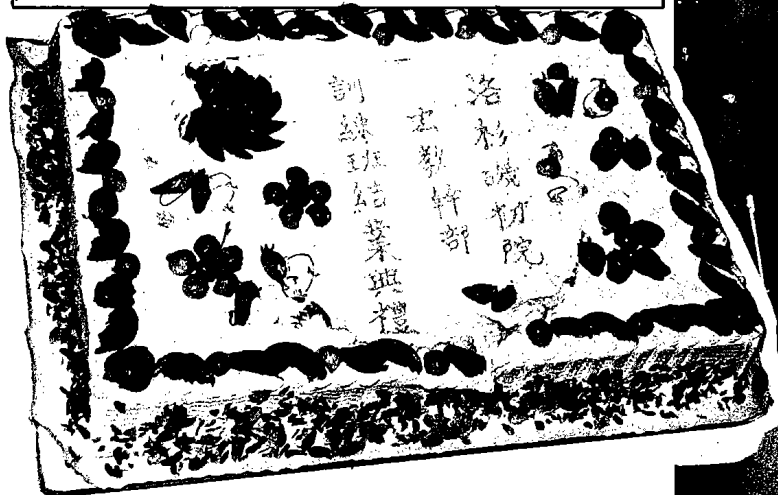 洛杉磯切院
宏教幹部
訓練班結業典禮